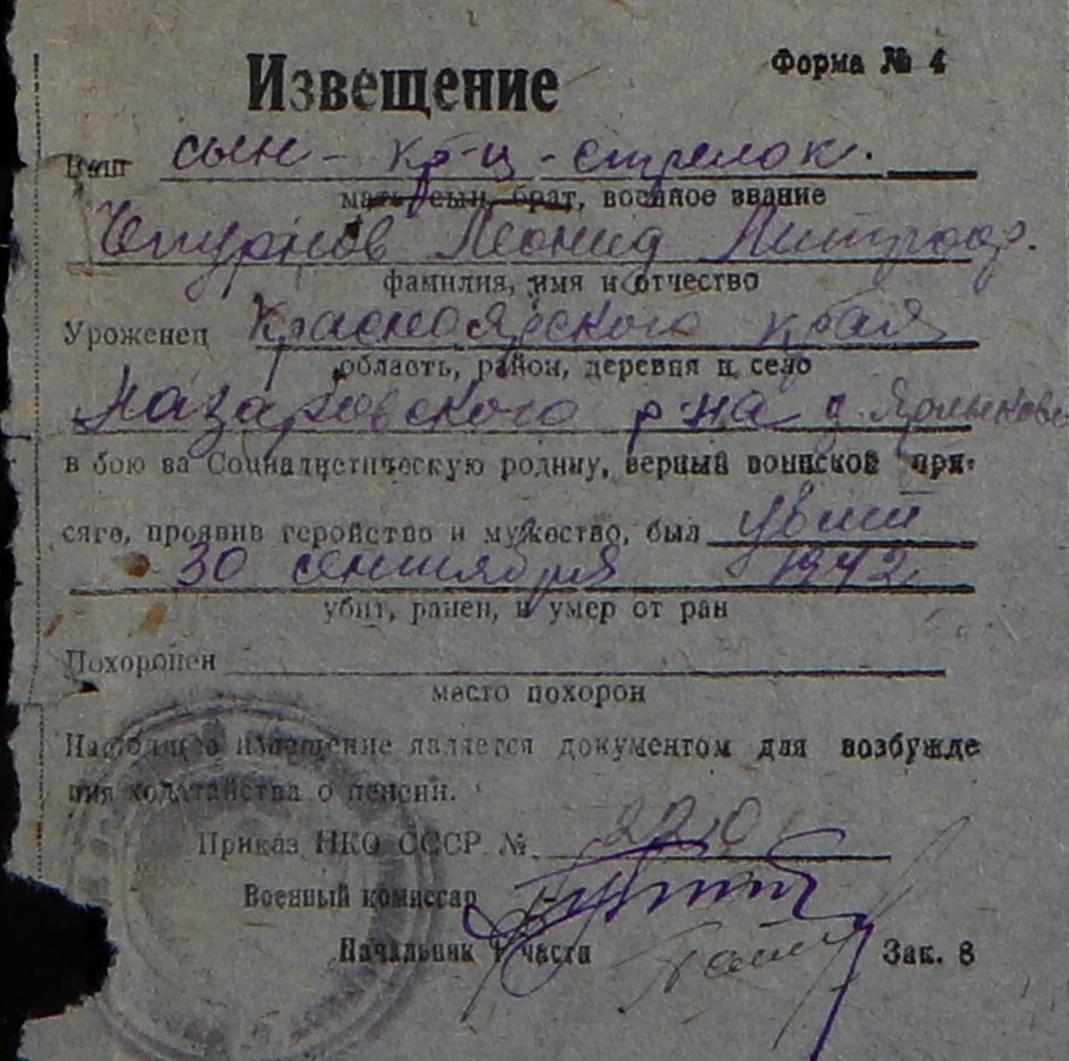 Извещение
Форма № 4
Ваш сын - кр-ц - стрелок.
мать, сын, брат, военное звание
Чмурнов Леонид
фамилия, имя и отчество
Уроженец Красноярского края
область, район, деревня и село
Назаровского р-на д. Ярлыково
в бою за Социалистическую родину, верный воинской при-
сяге, проявив геройство и мужество, был убит
30 сентября 1942
убит, ранен, и умер от ран
Похоронен
место похорон
Настоящее извещение является документом для возбужде
ния ходатайства о пенсии.
Приказ НКО СССР № 220
Военный комиссар
Начальник 1 части
Зак. 8